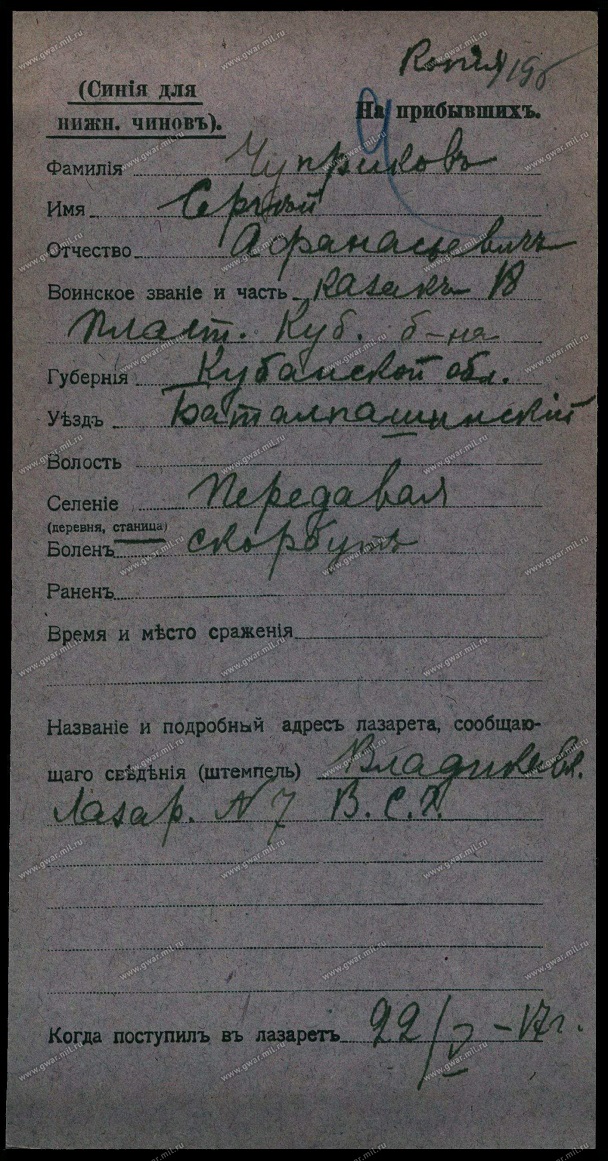 Копія 196
(Синія для
нижн. чиновъ).
На прибывшихъ.
Ч
Фамилія Чуприковъ
Имя Сергѣй
Отчество Афанасьевичъ
Воинское званіе и часть казакъ 18
Пласт. Куб. б-на
Губернія Кубанской обл.
Уѣздъ Баталпашинскій
Волость
Селеніе Передавая
(деревня, станица)
Боленъ скорбутъ
Раненъ
Время и мѣсто сраженія
Названіе и подробный адресъ лазарета, сообщаю-
щаго свѣдѣнія (штемпель) Владикавк.
Лазар. № 7 В. С. Г.
Когда поступилъ въ лазаретъ 22/V – 17 г.